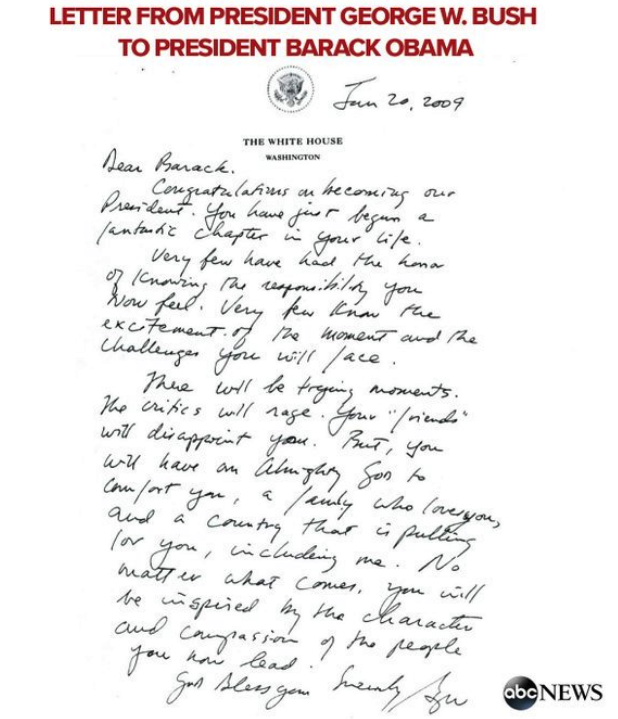 LETTER FROM PRESIDENT GEORGE W. BUSH
TO PRESIDENT BARACK OBAMA
Jan 20, 2009
THE WHITE HOUSE
WASHINGTON
Dear Barack.
Congratulations on becoming our
President. You have just begun a
fantastic chapter in your life.
Very few have had the honor
of knowing the responsibility you
now feel. Very few know the
excitement of the moment and the
challenges you will face.
There will be trying moments.
The critics will rage. Your "friends"
will disappoint you. But, you
will have an Almighty God to
comfort you, a family who loves you,
and a country that is pulling
for you, including me. No
matter what comes, you will
be inspired by the character
and compassion of the people
you now lead.
God bless you
Sincerely,
abc NEWS